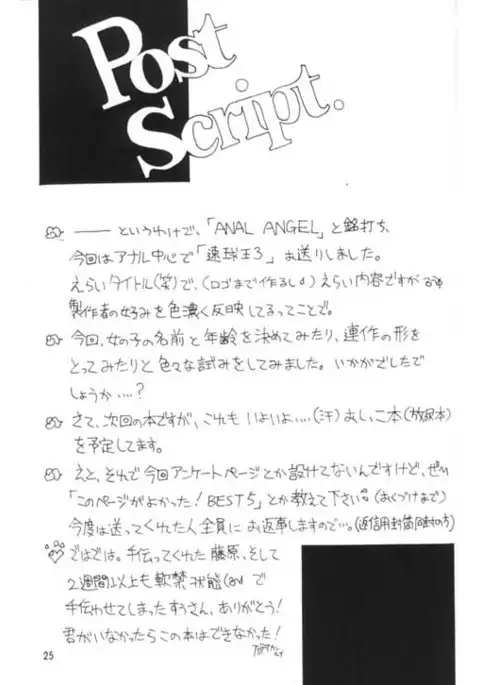 Post
Script.
―― というわけで、「ANAL ANGEL」と銘打ち、
今回はアナル中心で「速球王3」お送りしました。
えらいタイトル(笑)で、(ロゴまで作るし)えらい内容ですが
製作者の好みを色濃く反映してるってことで。
今回、女の子の名前と年齢を決めてみたり、連作の形を
とってみたりと色々な試みをしてみました。いかがでしたで
しょうか‥‥?
さて、次回の本ですが、これもいよいよ‥‥(汗)おしっこ本(放尿本)
を予定してます。
えと、それで今回アンケートページとか設けてないんですけど、ぜひ
「このページがよかった! BEST5」とか教えて下さい。(おくづけまで)
今度は送ってくれた人全員にお返事しますので…。(返信用封筒同封の方)
ではでは。手伝ってくれた藤原、そして
2週間以上も軟禁状態 で
手伝わせてしまったすうさん、ありがとう!
君がいなかったらこの本はできなかった!
25